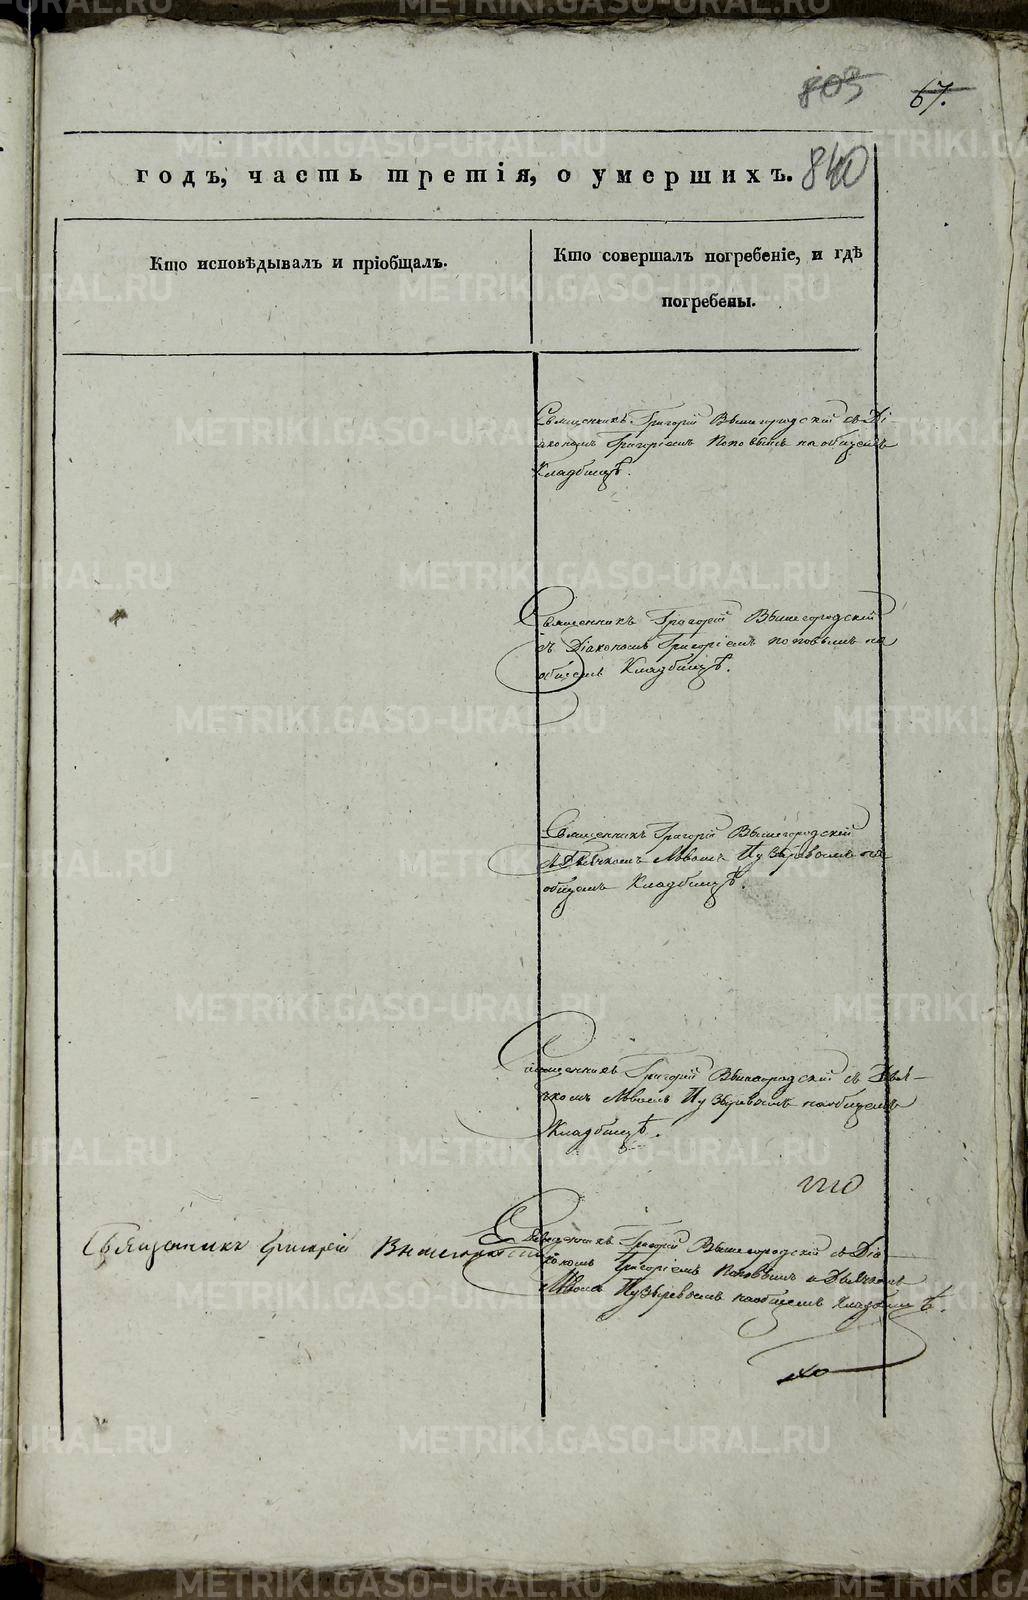 805 67.
годъ, часть третія, о умершихъ. 840
Кто исповѣдывалъ и пріобщалъ.
Кто совершалъ погребеніе, и гдѣ
погребены.
Священникъ Григорій Вышегородскій съ Ді
акономъ Григоріемъ Поповымъ на общемъ
Кладбищѣ.
Священникъ Григорій Вышегородскій
съ Діакономъ Григоріемъ Поповымъ на
общемъ Кладбищѣ.
Священникъ Григорій Вышегородскій
съ Дьячкомъ Львомъ Пузыревымъ на
общемъ Кладбищѣ.
Священникъ Григорій Вышегородскій съ Дья-
чкомъ Львомъ Пузыревымъ на общемъ
Кладбищѣ.
Священникъ Григорій Вышегородскій
Священникъ Григорій Вышегородскій съ Діа
кономъ Григоріемъ Поповымъ и Дьячкомъ
Львомъ Пузыревымъ на общемъ Кладбищѣ.
METRIKI.GASO-URAL.RU